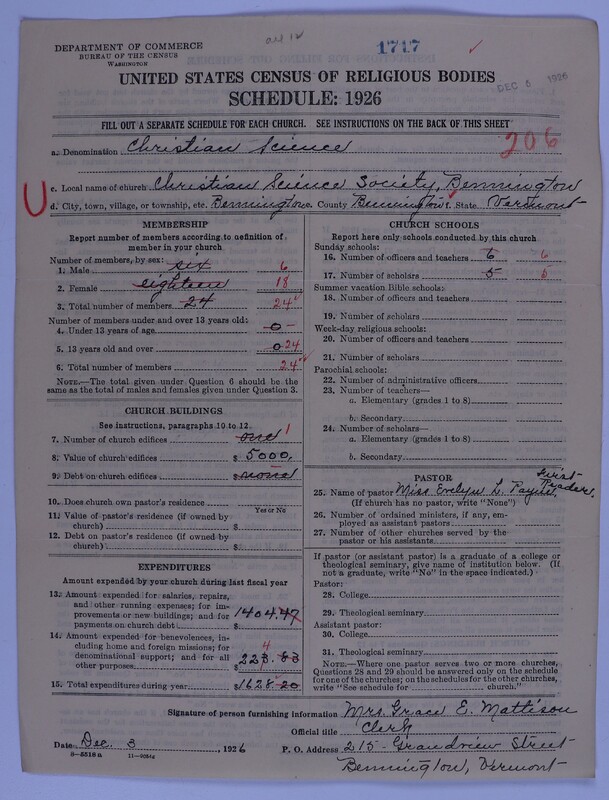 DEPARTMENT OF COMMERCE
BUREAU OF THE CENSUS
WASHINGTON
1717
DEC 6 1926
UNITED STATES CENSUS OF RELIGIOUS BODIES
SCHEDULE: 1926
FILL OUT A SEPARATE SCHEDULE FOR EACH CHURCH. SEE INSTRUCTIONS ON THE BACK OF THIS SHEET
206
a. Denomination Christian Science
c. Local name of church Christian Science Society, Bennington
d. City, town, village, or township, etc. Bennington e. County Bennington f. State Vermont
MEMBERSHIP
Report number of members according to definition of
member in your church
Number of members, by sex:
1. Male six 6
2. Female eighteen 18
3. Total number of members 24 24
Number of members under and over 13 years old:
4. Under 13 years of age 0 -
5. 13 years old and over 0 24
6. Total number of members 24
NOTE.—The total given under Question 6 should be the
same as the total of males and females given under Question 3.
CHURCH BUILDINGS
See instructions, paragraphs 10 to 12.
7. Number of church edifices one 1
8. Value of church edifices $ 5000.
9. Debt on church edifices $ none
10. Does church own pastor's residence
Yes or No
11. Value of pastor's residence (if owned by
church) $
12. Debt on pastor's residence (if owned by
church) $
EXPENDITURES
Amount expended by your church during last fiscal year
13. Amount expended for salaries, repairs,
and other running expenses; for im-
provements or new buildings; and for
payments on church debt $ 1404.47
14. Amount expended for benevolences, in-
cluding home and foreign missions; for
denominational support; and for all
other purposes $ 223.83
4
15. Total expenditures during year $1628 20
CHURCH SCHOOLS
Report here only schools conducted by this church
Sunday schools:
16. Number of officers and teachers 6 6
17. Number of scholars 5 5
Summer vacation Bible schools:
18. Number of officers and teachers
19. Number of scholars
Week-day religious schools:
20. Number of officers and teachers
21. Number of scholars
Parochial schools:
22. Number of administrative officers
23. Number of teachers—
a. Elementary (grades 1 to 8)
b. Secondary
24. Number of scholars—
a. Elementary (grades 1 to 8)
b. Secondary
PASTOR
25. Name of pastor Miss Evelyn L. Payne, First Reader.
(If church has no pastor, write "None")
26. Number of ordained ministers, if any, em-
ployed as assistant pastors
27. Number of other churches served by the
pastor or his assistants
If pastor (or assistant pastor) is a graduate of a college or
theological seminary, give name of institution below. (If
not a graduate, write "No" in the space indicated.)
Pastor:
28. College
29. Theological seminary
Assistant pastor:
30. College
31. Theological seminary
NOTE.—Where one pastor serves two or more churches,
Questions 28 and 29 should be answered only on the schedule
for one of the churches; on the schedules for the other churches,
write "See schedule for church."
Signature of person furnishing information Mrs. Grace E. Mattison
Official title Clerk
Date Dec. 3, 1926 P. O. Address 215 - Grandview Street
8—5518a
Bennington, Vermont